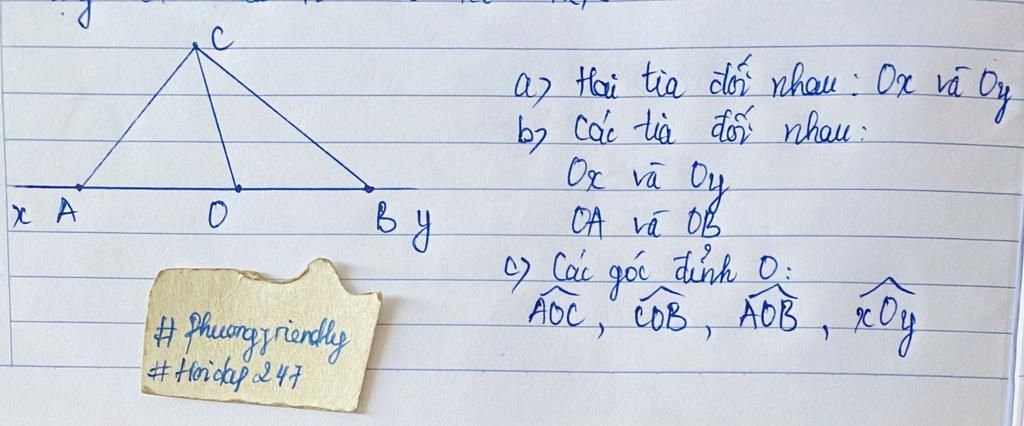 C
x A O B y
a) Hai tia đối nhau: Ox và Oy
b) Các tia đối nhau:
Ox và Oy
OA và OB
c) Các góc đỉnh O:
AOC, COB, AOB, xOy
# phuongfriendly
# Hoidap 247